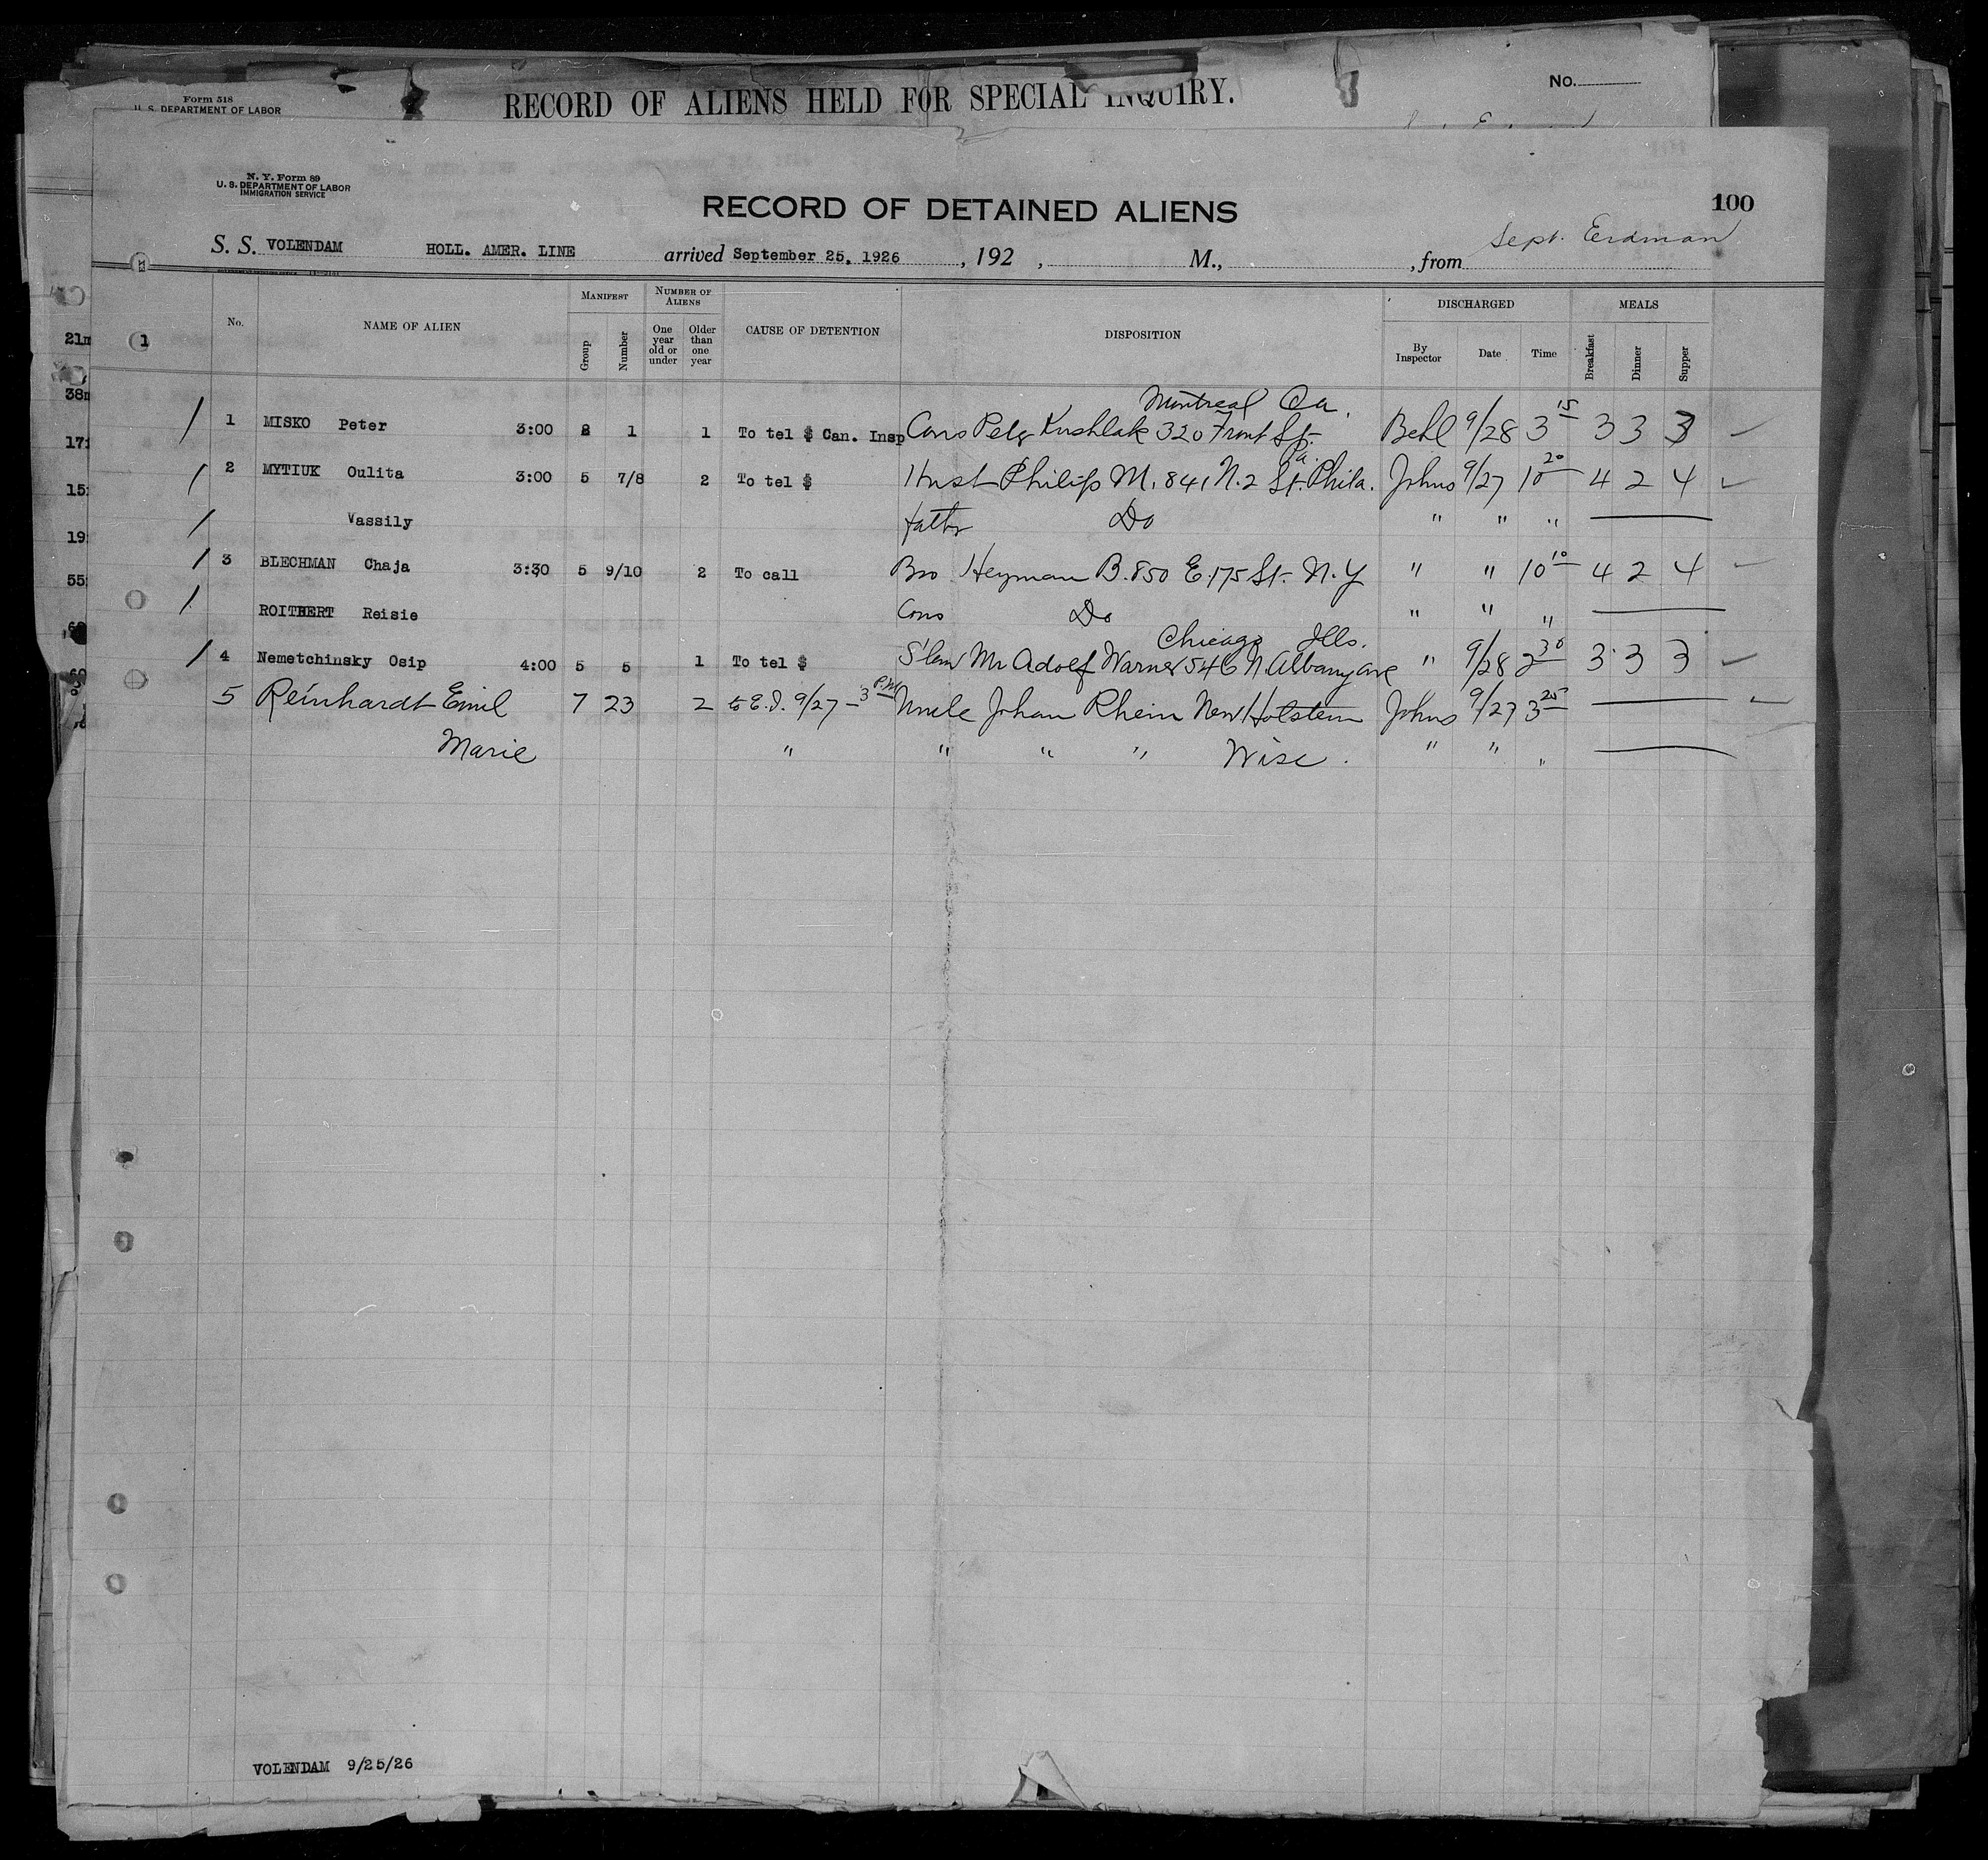 Form 518
U. S. DEPARTMENT OF LABOR
RECORD OF ALIENS HELD FOR SPECIAL INQUIRY.
No.
N. Y. Form 89
U. S. DEPARTMENT OF LABOR
IMMIGRATION SERVICE
RECORD OF DETAINED ALIENS
100
S. S. VOLENDAM HOLL. AMER. LINE arrived September 25, 1926, 192 , M., , from Sept. Erdman
No. NAME OF ALIEN MANIFEST Group Number NUMBER OF ALIENS One year old or under Older than one year CAUSE OF DETENTION DISPOSITION DISCHARGED By Inspector Date Time MEALS Breakfast Dinner Supper
1
Montreal Ca.
1 MISKO Peter 3:00 8 1 1 To tel $ Can. Insp Cons Kushlak 320 Front St. Behl 9/28 3 15 3 3 3
2 MYTIUK Oulita 3:00 5 7/8 2 To tel $ Husb Philip M. 841 N. 2 St. Phila. Pa. Johns 9/27 10 20 4 2 4
Vassily fathr Do " " "
3 BLECHMAN Chaja 3:30 5 9/10 2 To call Bro Heyman B. 850 E. 175 St. N. Y " " 10 10 4 2 4
ROITBERT Reisie Cons Do " " "
Chicago Ills.
4 Nemetchinsky Osip 4:00 5 5 1 To tel $ S'law Mr Adolf Warner 546 N. Albany ave " 9/28 2 30 3 3 3
5 Reinhardt Emil 7 23 2 to 9/27 - 3 P.M Uncle Johan Rhein New Holstein Johns 9/27 3 25
Marie " " " " Wisc. " " "
VOLENDAM 9/25/26